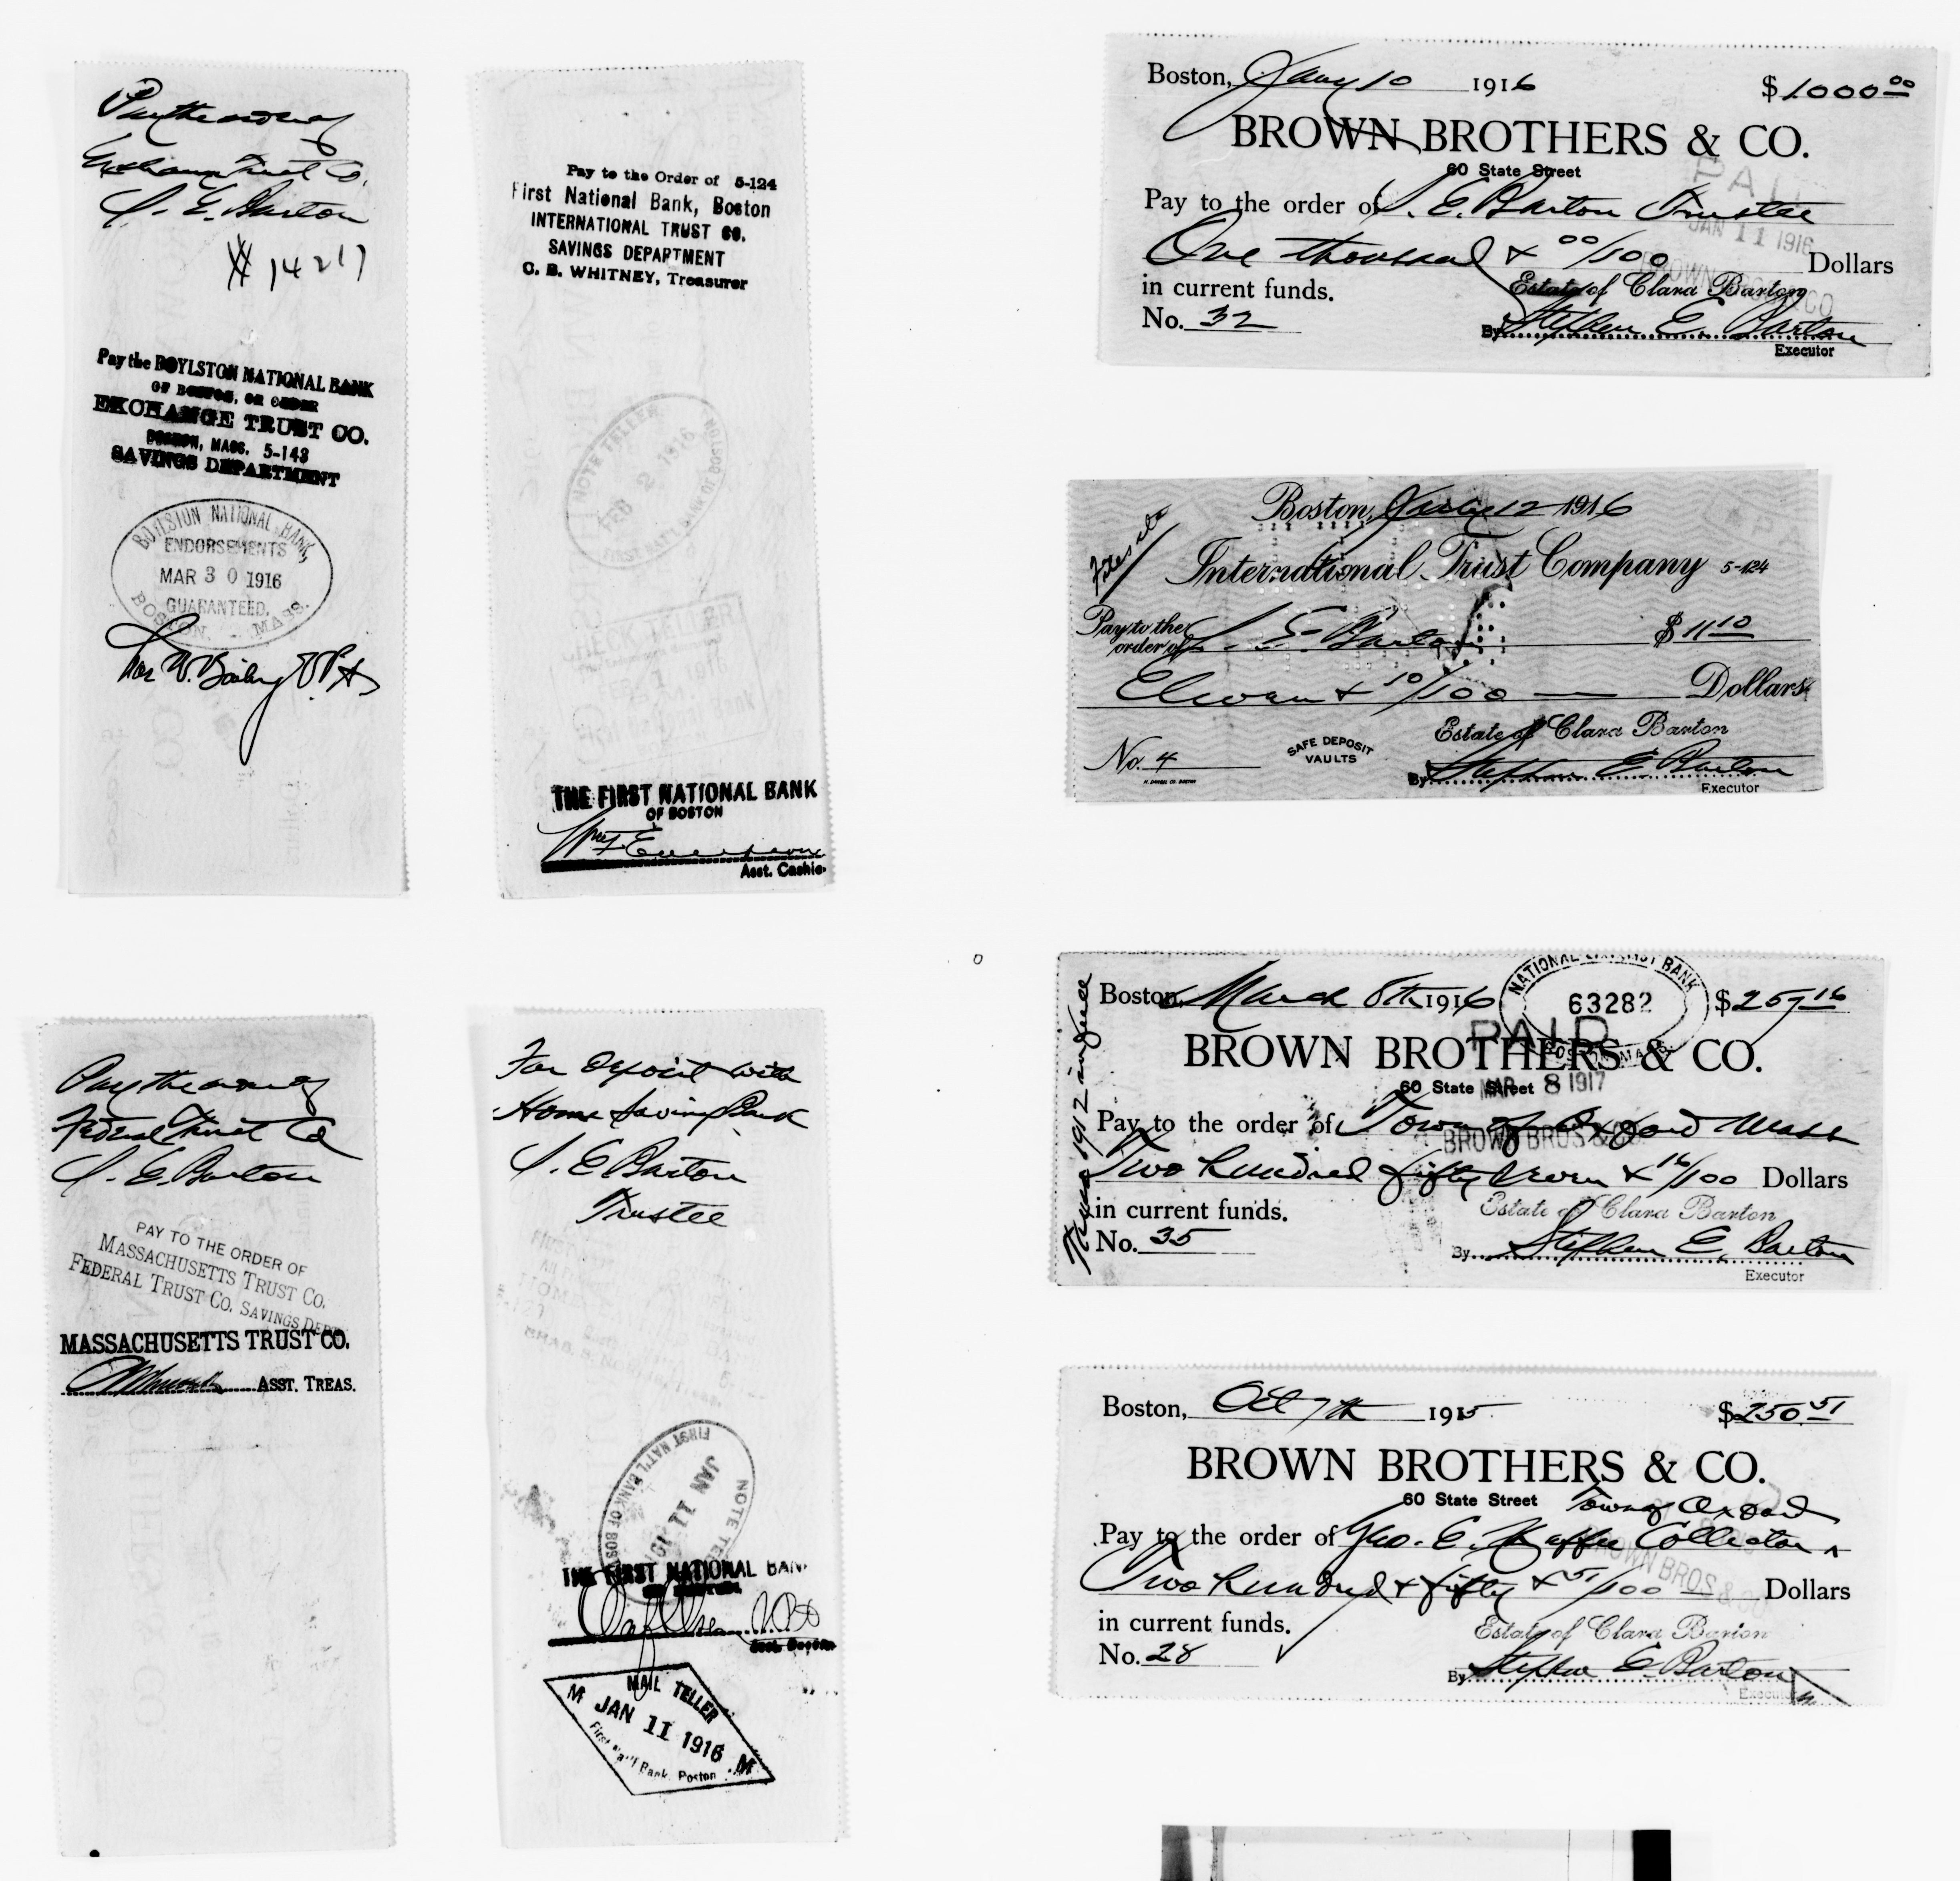 Pay the order of
Exchange Trust Co.
S. E. Barton
# 14217
Pay the BOYLSTON NATIONAL BANK
OF BOSTON, OR ORDER
EXCHANGE TRUST CO.
BOSTON, MASS. 5-143
SAVINGS DEPARTMENT
BOYLSTON NATIONAL BANK,
ENDORSEMENTS
MAR 30 1916
GUARANTEED.
BOSTON, MASS.
Pay to the Order of 5-124
First National Bank, Boston
INTERNATIONAL TRUST CO.
SAVINGS DEPARTMENT
C. B. WHITNEY, Treasurer
NOTE TELLER
FEB 2 1916
FIRST NAT'L BANK OF BOSTON
CHECK TELLER
FEB 1 1916
First National Bank
THE FIRST NATIONAL BANK
OF BOSTON
Asst. Cashier
Pay the order of
Federal Trust Co
S. E. Barton
PAY TO THE ORDER OF
MASSACHUSETTS TRUST CO.
FEDERAL TRUST CO. SAVINGS DEPT.
MASSACHUSETTS TRUST CO.
ASST. TREAS.
For Deposit with
Home Savings Bank
S. E. Barton
Trustee
FIRST NAT'L BANK OF BOS
JAN 11 19
NOTE TE
THE FIRST NATIONAL BAN
OF BOSTON
MAIL TELLER
M JAN 11 1916 M
First Nat'l Bank, Boston
Boston, Jany 10 1916 $1000 00
BROWN BROTHERS & CO.
60 State Street
PAID
Pay to the order of S. E. Barton Trustee
JAN 11 1916
One thousand & 00/100 Dollars
BROWN BROS & CO
in current funds. Estate of Clara Barton
No. 32 By Stephen E. Barton
Executor
Boston, 12 1916
International Trust Company 5-124
Pay to the order of S. E. Barton $11 10
Eleven & 10/100 Dollars
Estate of Clara Barton
No. 4 SAFE DEPOSIT VAULTS By Stephen E Barton
Executor
Boston, March 8th 1916 $257 16
NATIONAL BANK
63282
BOSTON, MASS.
BROWN BROTHERS & CO.
PAID
60 State Street MAR 8 1917
Pay to the order of Town of Oxford Mass
BROWN BROS & CO
Two hundred fifty seven & 16/100 Dollars
in current funds. Estate of Clara Barton
No. 35 By Stephen E. Barton
Executor
Boston, Oct 7th 1915 $250 51
BROWN BROTHERS & CO.
60 State Street Town of Oxford
Pay to the order of Geo. E. Collector
BROWN BROS & CO
Two hundred & fifty & 51/100 Dollars
in current funds. Estate of Clara Barton
No. 28 By Stephen E. Barton
Executor